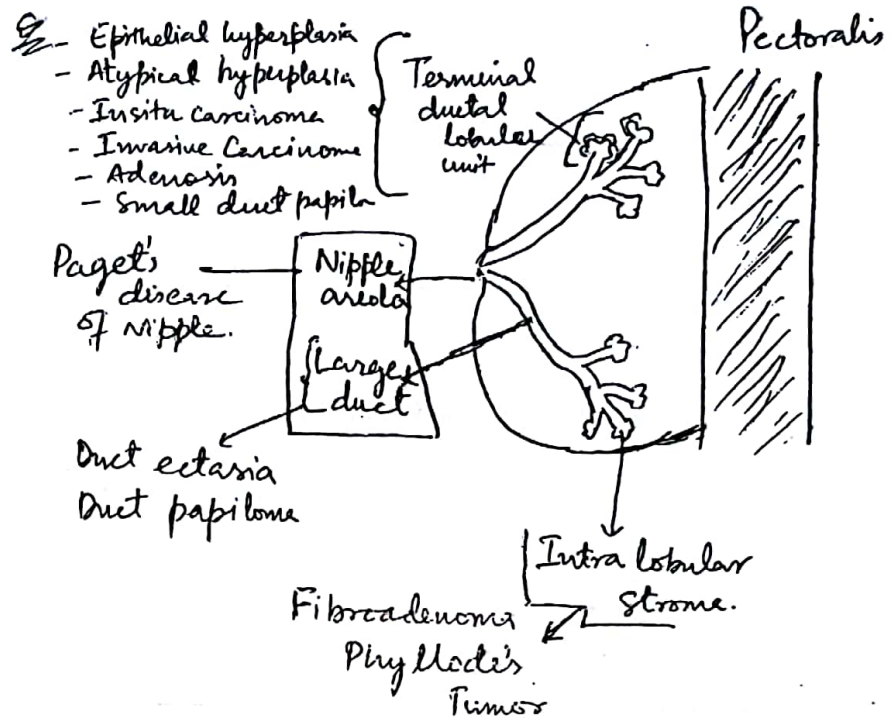 - Epithelial hyperplasia
- Atypical hyperplasia
- Insitu carcinoma
- Invasive Carcinoma
- Adenosis
- Small duct papila
Terminal
ductal
lobular
unit
Pectoralis
Paget's
disease
of Nipple.
Nipple
areola
Large
duct
Duct ectasia
Duct papiloma
Intra lobular
Stroma.
Fibroadenoma
Phyllode's
Tumor